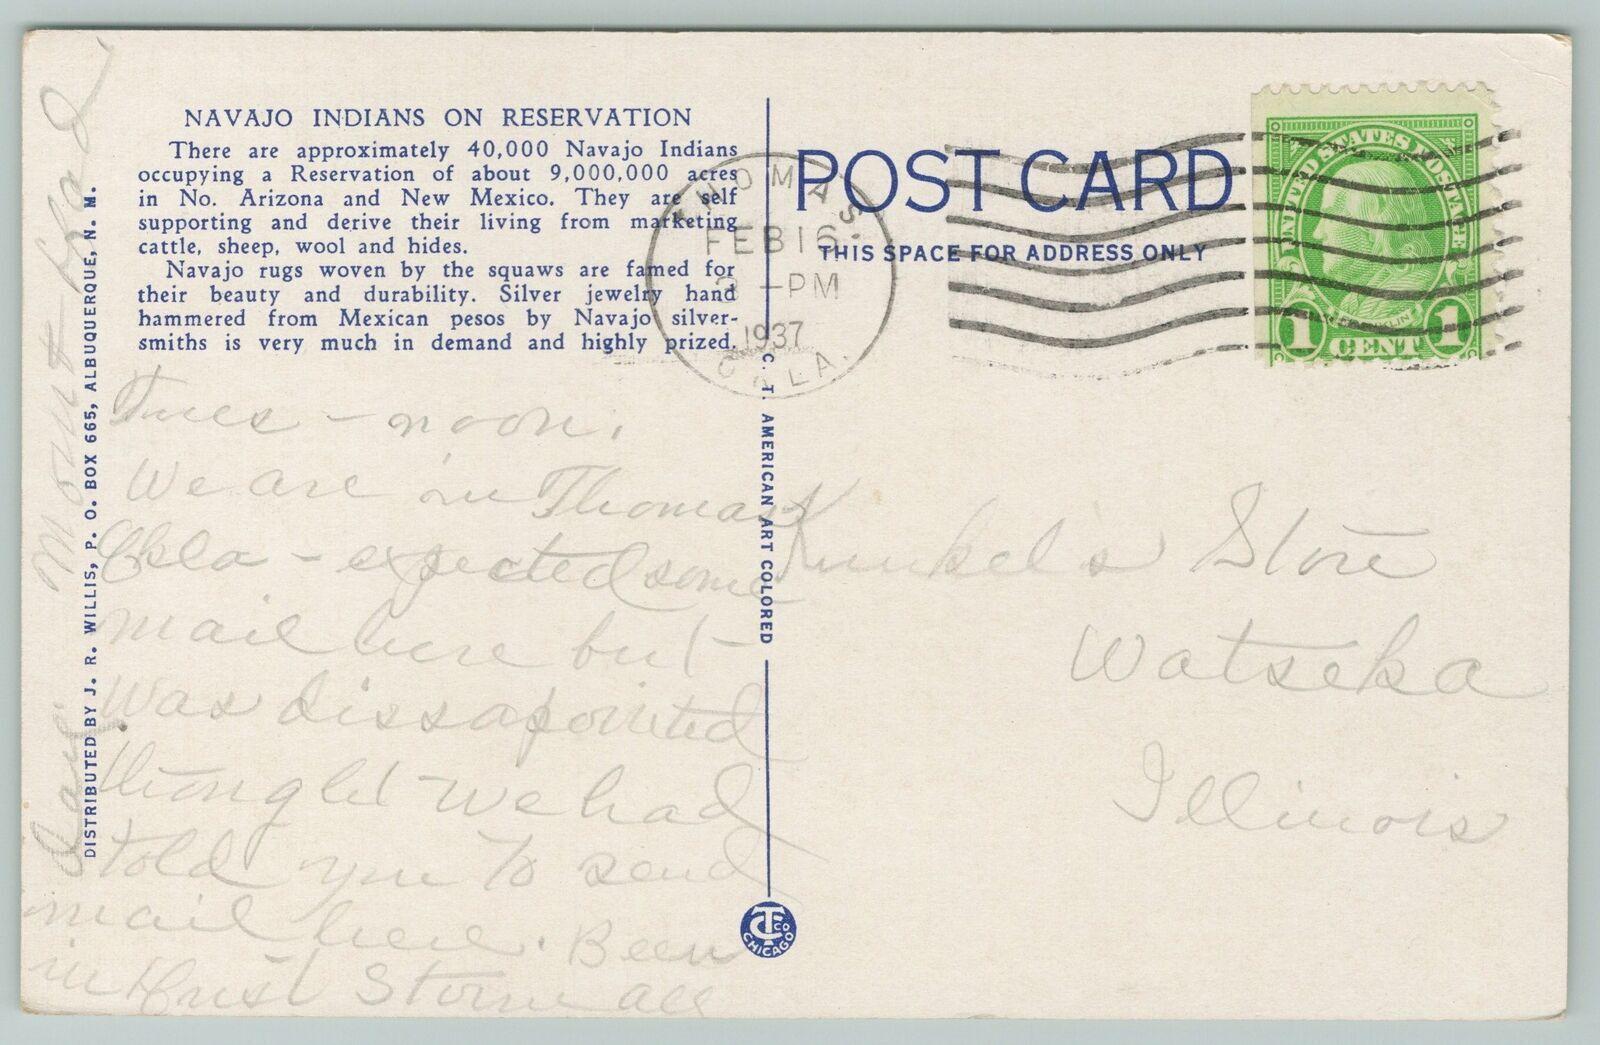 NAVAJO INDIANS ON RESERVATION
There are approximately 40,000 Navajo Indians
occupying a Reservation of about 9,000,000 acres
in No. Arizona and New Mexico. They are self
supporting and derive their living from marketing
cattle, sheep, wool and hides.
Navajo rugs woven by the squaws are famed for
their beauty and durability. Silver jewelry hand
hammered from Mexican pesos by Navajo silver-
smiths is very much in demand and highly prized.
Tues - noon.
We are in Thomas
Okla - expected some
mail here but -
was dissapointed
thought we had
told you to send
mail here. Been
in Dust Storm all
day. mont bad
DISTRIBUTED BY J. R. WILLIS, P. O. BOX 665, ALBUQUERQUE, N. M.
C. T. AMERICAN ART COLORED
CT CO
CHICAGO
THOMAS
FEB 16
-PM
1937
OKLA.
POST CARD
THIS SPACE FOR ADDRESS ONLY
UNITED STATES POSTAGE
FRANKLIN
1 CENT 1
Kunkel's Store
Watseka
Illinois